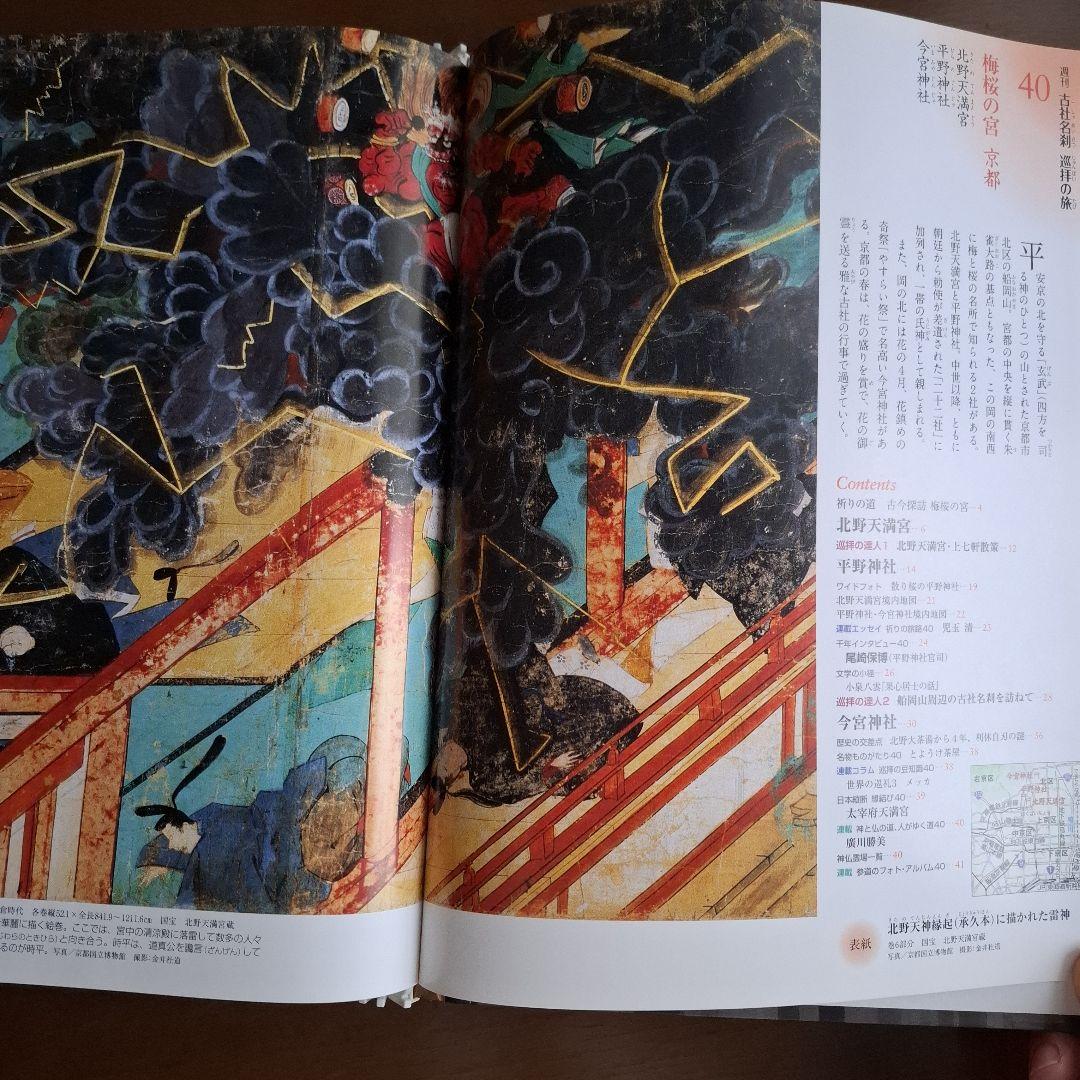 週刊 古社名刹 巡拝の旅
40
梅桜の宮 京都
北野天満宮
平野神社
今宮神社
平安京の北を守る「玄武（四方を司
る神のひとつ）の山とされた京都市
北区の船岡山。宮都の中央を縦に貫く朱
雀大路の基点ともなった、この岡の南西
に梅と桜の名所で知られる2社がある。
北野天満宮と平野神社。中世以降、ともに
朝廷から勅使が差遣された「二十二社」に
加列され、一帯の氏神として親しまれる。
また、岡の北には花の4月、花鎮めの
奇祭「やすらい祭」で名高い今宮神社があ
る。京都の春は、花の盛りを賞で、花の御
霊を送る雅な古社の行事で過ぎていく。
Contents
祈りの道 古今探訪 梅桜の宮…4
北野天満宮…6
巡拝の達人1 北野天満宮・上七軒散策…12
平野神社…14
ワイドフォト 散り桜の平野神社…19
北野天満宮境内地図…21
平野神社・今宮神社境内地図…22
連載エッセイ 祈りの旅路40 児玉 清…23
千年インタビュー40…24
尾崎保博（平野神社宮司）
文学の小径…26
小泉八雲「果心居士の話」
巡拝の達人2 船岡山周辺の古社名刹を訪ねて…28
今宮神社…30
歴史の交差点 北野大茶湯から4年、利休自刃の謎…36
名物ものがたり40 とようけ茶屋…38
連載コラム 巡拝の豆知識40…38
世界の巡礼3 メッカ
日本縦断 縁結び40…39
太宰府天満宮
連載 神と仏の道、人がゆく道40…40
廣川勝美
神仏霊場一覧…40
連載 参道のフォト・アルバム40…41
右京区
今宮神社
平野神社
北野天満宮
北区
上京区
中京区
下京区
表紙
北野天神縁起（承久本）に描かれた雷神
巻6部分 国宝 北野天満宮蔵
写真／京都国立博物館 撮影：金井杜道
倉時代 各巻縦52.1×全長841.9〜1211.6cm 国宝 北野天満宮蔵
華麗に描く絵巻。ここでは、宮中の清涼殿に落雷して数多の人々
じわらのときひら）と向き合う。時平は、道真公を讒言（ざんげん）して
るのが時平。写真／京都国立博物館 撮影：金井杜道